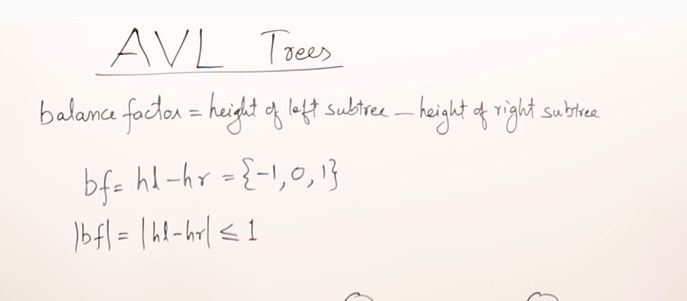 AVL Trees
balance factor = height of left subtree – height of right subtree
bf = hl – hr = {-1, 0, 1}
|bf| = |hl – hr| ≤ 1